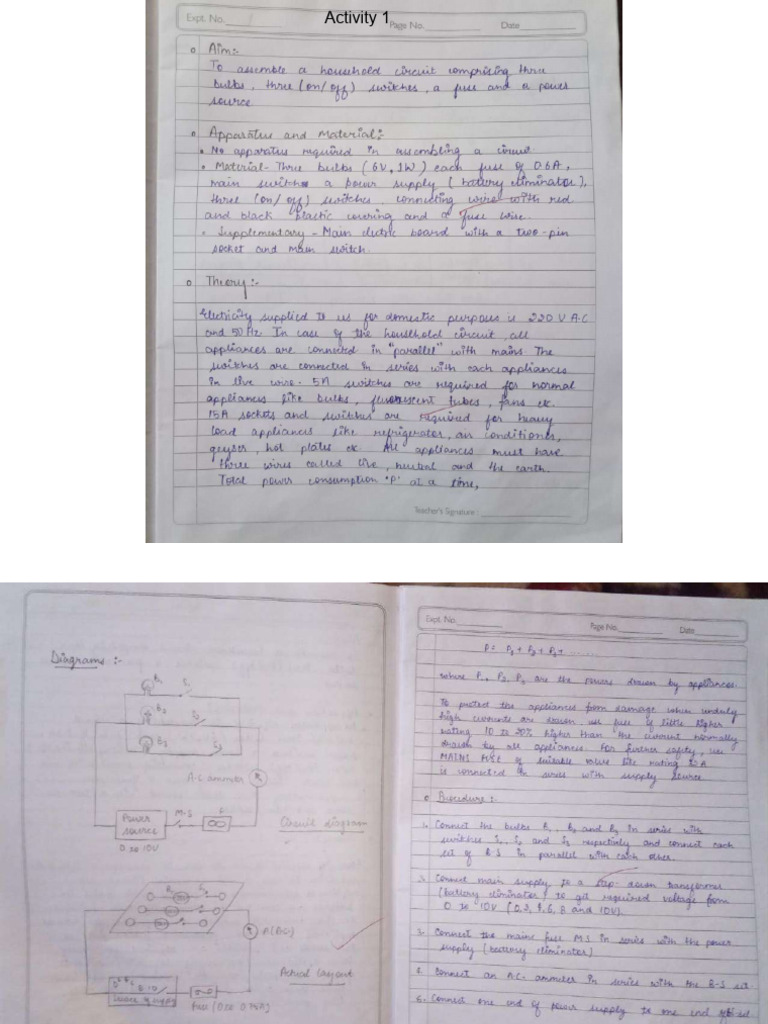 Activity 1
Expt. No.
Page No.
Date
Aim:-
To assemble a household circuit comprising three
bulbs, three (on/off) switches, a fuse and a power
source
Apparatus and Material:-
No apparatus required in assembling a circuit.
Material- Three bulbs (6V, 1W) each fuse of 0.6A,
main switch a power supply (battery eliminator),
three (on/off) switches, connecting wire with red
and black plastic covering and a fuse wire.
Supplementary - Main electric board with a two-pin
socket and main switch.
Theory:-
Electricity supplied to us for domestic purpous is 220 V A.C
and 50 Hz. In case of the household circuit, all
appliances are connected in "parallel" with mains. The
switches are connected in series with each appliances
in live wire. 5A switches are required for normal
appliances like bulbs, fluorescent tubes, fans etc.
15A sockets and switches are required for heavy
load appliances like refrigerator, air conditioner,
geyser, hot plates etc. All appliances must have
three wires called live, neutral and the earth.
Total power consumption 'P' at a time,
Teacher's Signature :
Diagrams :-
B1
S1
B2
S2
B3
S3
A.C ammeter
Power
source
M.S
F
0 to 10V
Circuit diagram
A(AC)
Actual layout
Source of supply
fuse (0.60 0.75A)
Expt. No.
Page No.
Date
P = P1 + P2 + P3 + ......
where P1, P2, P3 are the powers drawn by appliances.
To protect the appliances from damage when unduly
high currents are drawn use fuse of little higher
rating 10 to 20% higher than the current normally
drawn by all appliances. For further safety, use
MAINS FUSE of suitable value like rating
is connected in series with supply source
Procedure :-
1. Connect the bulbs B1, B2 and B3 in series with
switches S1, S2 and S3 respectively and connect each
set of B-S in parallel with each other.
Connect main supply to a step down transformer
(battery eliminator) to get required voltage from
0 to 10V (0,2, 4, 6, 8 and 10V).
3. Connect the mains fuse M.S in series with the power
supply (battery eliminator)
Connect an A.C. ammeter in series with the B-S set
Connect one end of power supply to one end of